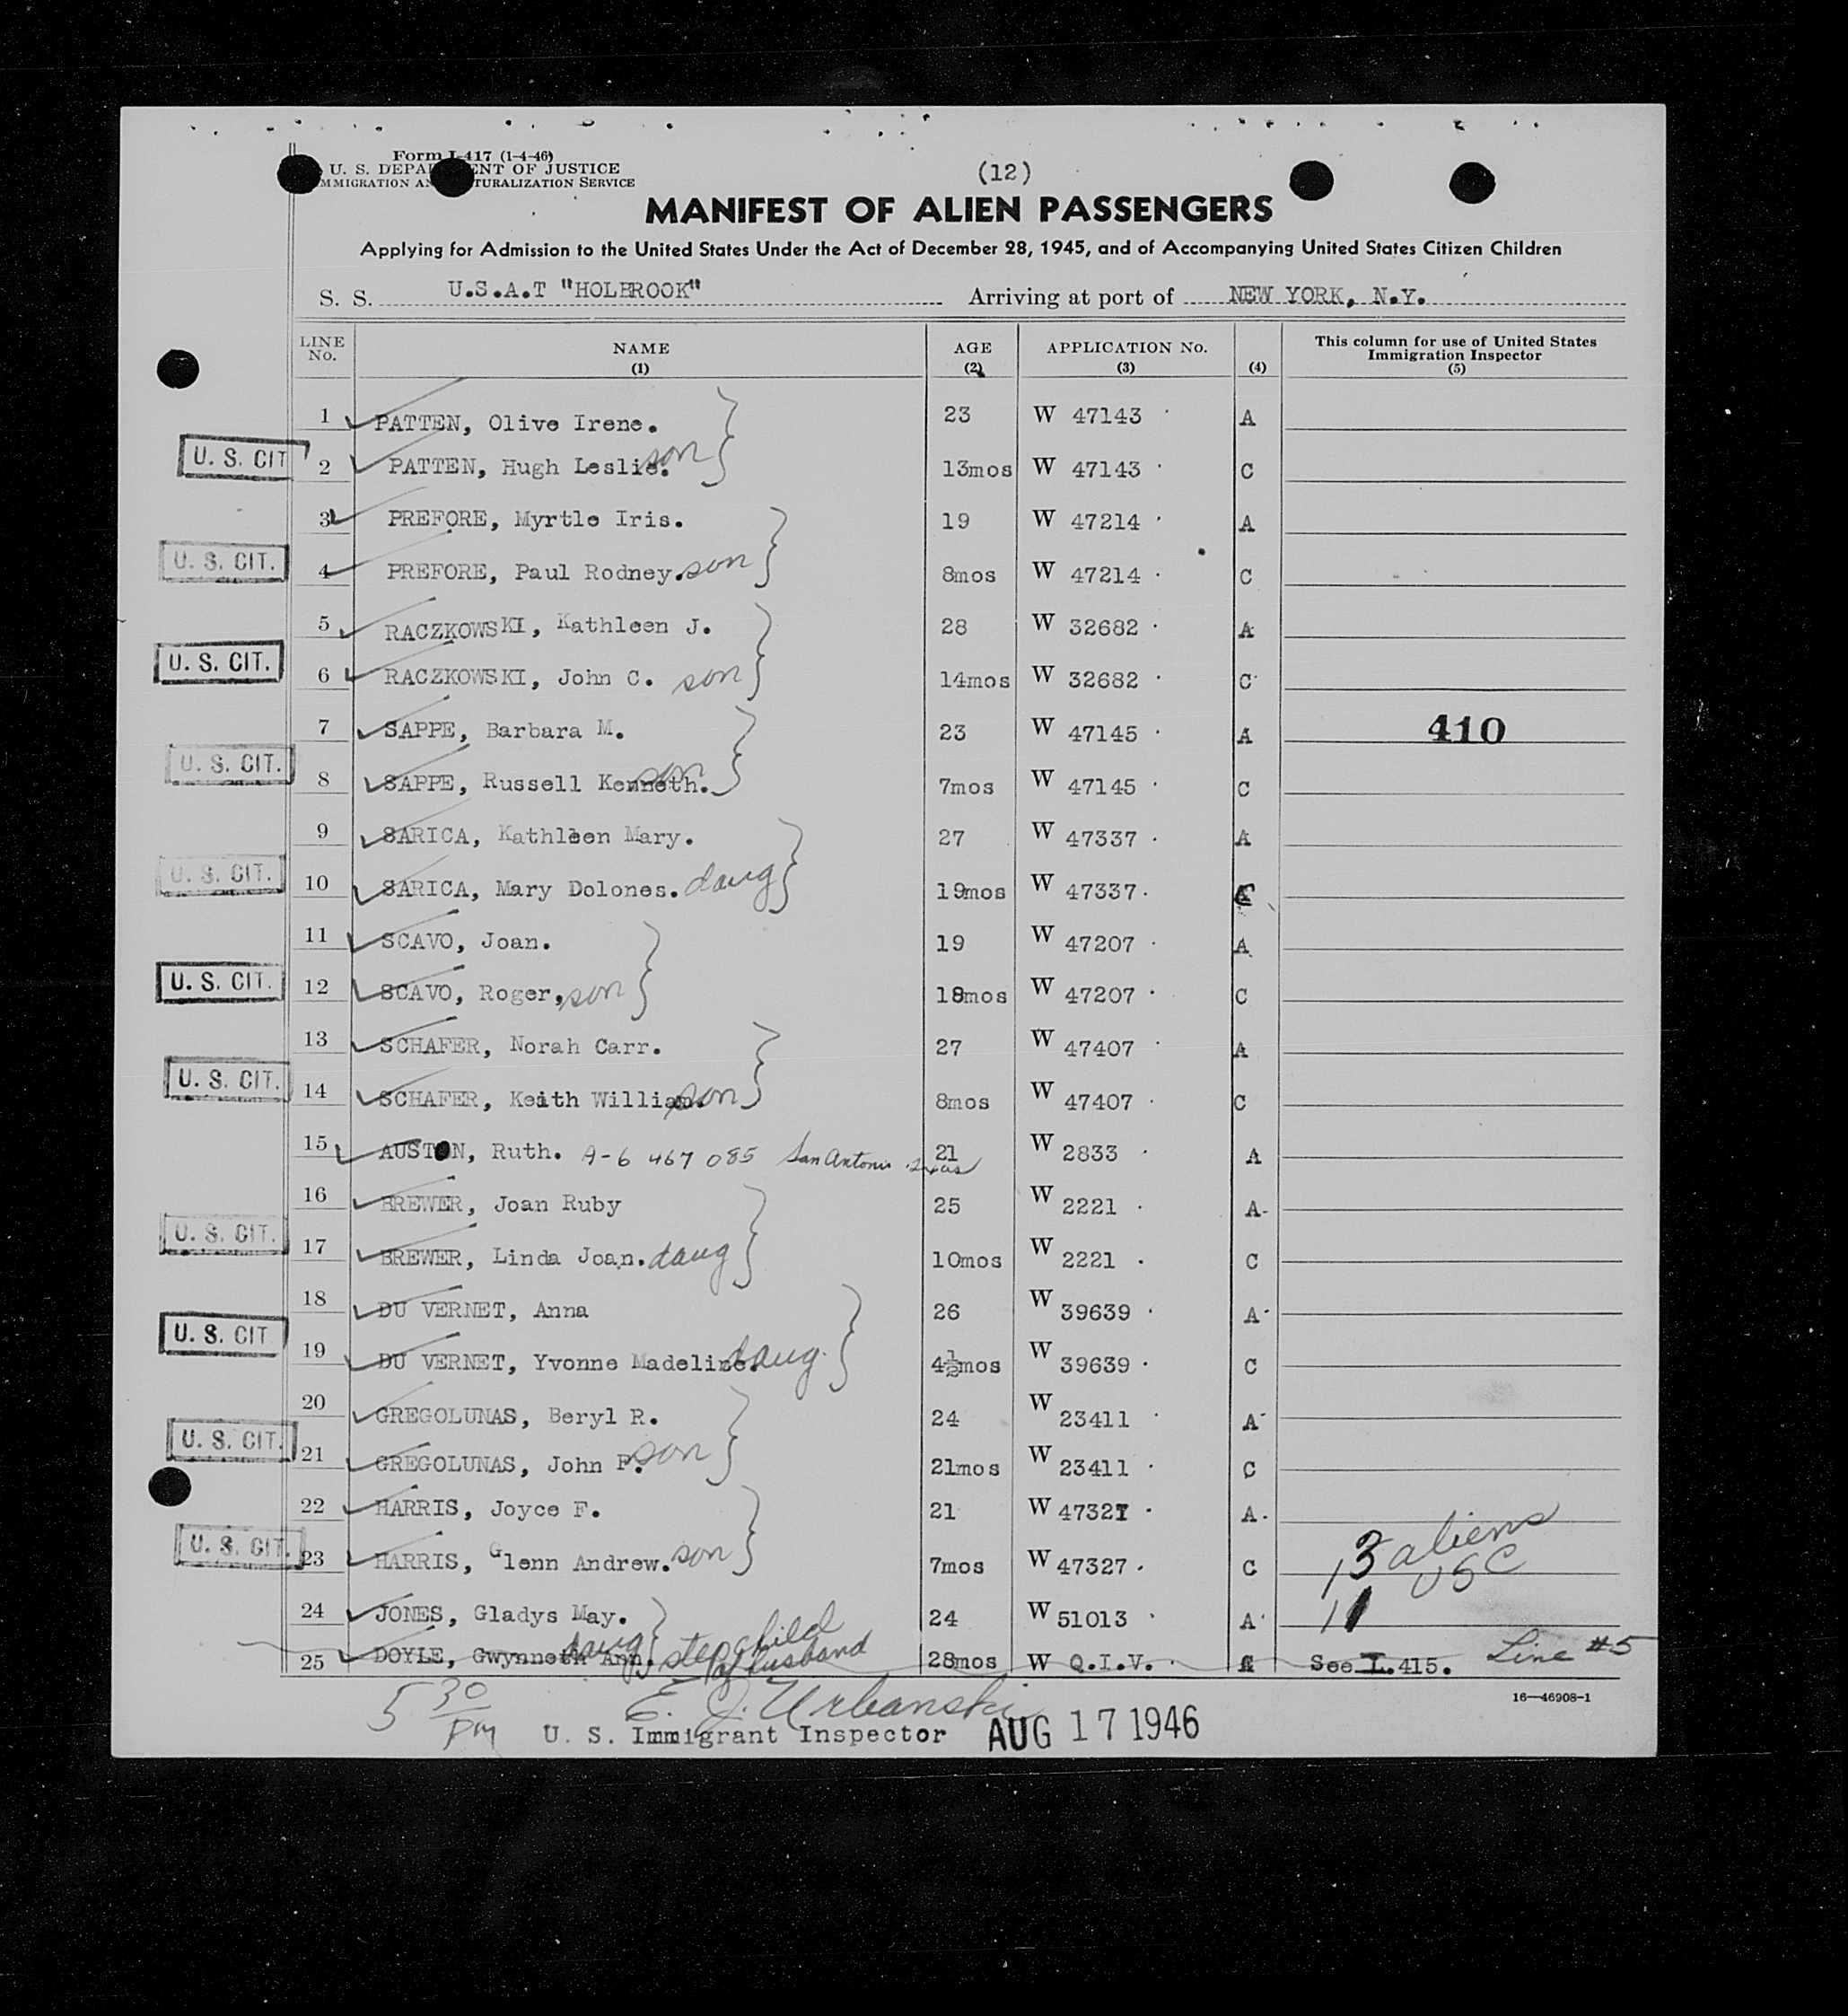 Form I-417 (1-4-46)
U. S. DEPARTMENT OF JUSTICE
IMMIGRATION AND NATURALIZATION SERVICE
(12)
MANIFEST OF ALIEN PASSENGERS
Applying for Admission to the United States Under the Act of December 28, 1945, and of Accompanying United States Citizen Children
S. S. U.S.A.T "HOLBROOK" Arriving at port of NEW YORK, N.Y.
LINE No. NAME (1) AGE (2) APPLICATION No. (3) (4) This column for use of United States Immigration Inspector (5)
1 PATTEN, Olive Irene. 23 W 47143 A
U. S. CIT 2 PATTEN, Hugh Leslie. son 13mos W 47143 C
3 PREFORE, Myrtle Iris. 19 W 47214 A
U. S. CIT. 4 PREFORE, Paul Rodney. son 8mos W 47214 C
5 RACZKOWSKI, Kathleen J. 28 W 32682 A
U. S. CIT. 6 RACZKOWSKI, John C. son 14mos W 32682 C
7 SAPPE, Barbara M. 23 W 47145 A 410
U. S. CIT. 8 SAPPE, Russell Kenneth. son 7mos W 47145 C
9 SARICA, Kathleen Mary. 27 W 47337 A
U. S. CIT. 10 SARICA, Mary Dolones. daug 19mos W 47337 C
11 SCAVO, Joan. 19 W 47207 A
U. S. CIT. 12 SCAVO, Roger, son 18mos W 47207 C
13 SCHAFER, Norah Carr. 27 W 47407 A
U. S. CIT. 14 SCHAFER, Keith William. son 8mos W 47407 C
15 AUSTON, Ruth. A-6 467 085 San Antonio Texas 21 W 2833 A
16 BREWER, Joan Ruby 25 W 2221 A
U. S. CIT. 17 BREWER, Linda Joan. daug 10mos W 2221 C
18 DU VERNET, Anna 26 W 39639 A
U. S. CIT 19 DU VERNET, Yvonne Madeline. daug. 4½mos W 39639 C
20 GREGOLUNAS, Beryl R. 24 W 23411 A
U. S. CIT. 21 GREGOLUNAS, John P. son 21mos W 23411 C
22 HARRIS, Joyce F. 21 W 47327 A 13 aliens
U. S. CIT. 23 HARRIS, Glenn Andrew. son 7mos W 47327 C 11 USC
24 JONES, Gladys May. 24 W 51013 A
25 DOYLE, Gwynneth Ann. daug stepchild of husband 28mos W Q.I.V. See I.415. Line #5
16—46908-1
5 30 pm E. J. Urbanski
U. S. Immigrant Inspector AUG 17 1946